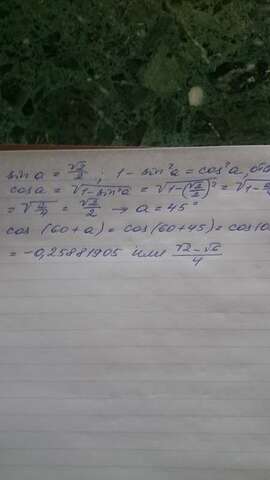 sin a = √2/2 ; 1 - sin²a = cos²a,
cos a = √(1-sin²a) = √(1-(√2/2)²) = √(1-
= = √2/2 → a = 45°
cos (60+a) = cos(60+45) = cos10
= -0,25881905 или (√2-√6)/4